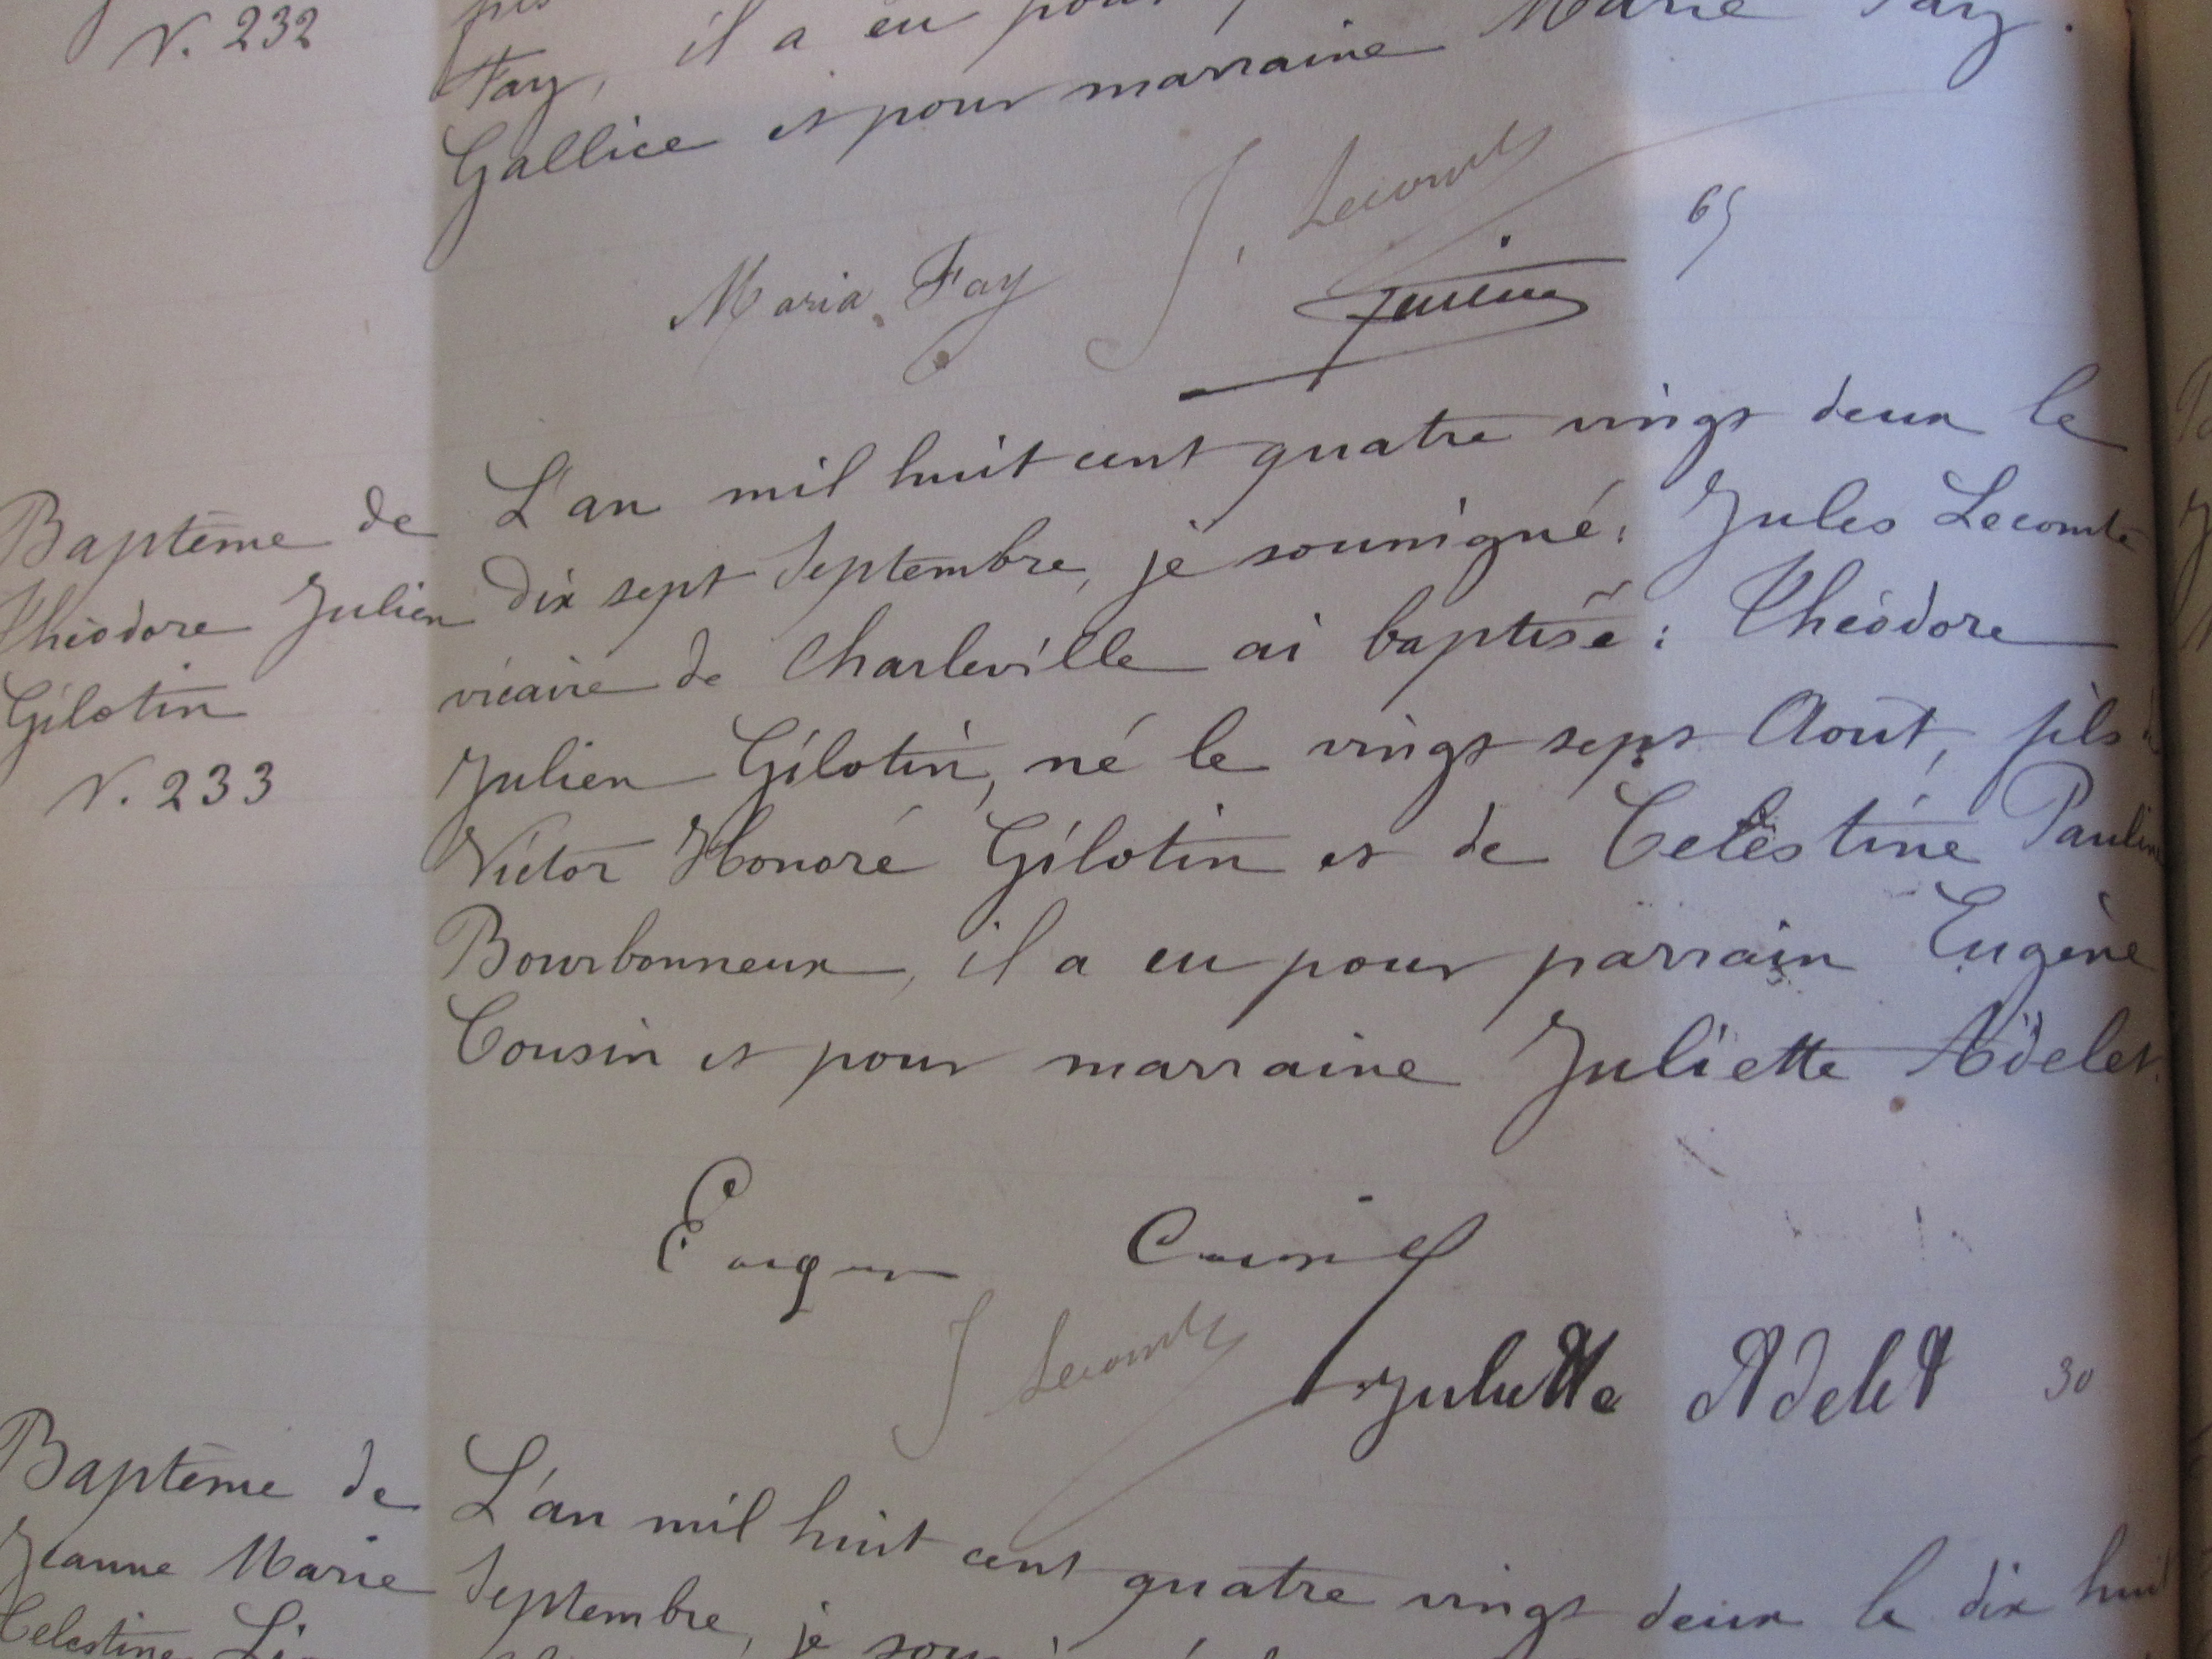 N. 232
Fay, il a eu pour
Gallice et pour marraine Marie Fay.
Maria Fay J. Lecomte
65
Baptême de
Théodore Julien
Gilotin
N. 233
L'an mil huit cent quatre vingt deux le
dix sept Septembre, je soussigné: Jules Lecomte
vicaire de Charleville ai baptisé: Théodore
Julien Gilotin, né le vingt sept Août, fils de
Victor Honoré Gilotin et de Célestine Pauline
Bourbonneux, il a eu pour parrain Eugène
Cousin et pour marraine Juliette Adelet.
Eugene Cousin
J Lecomte Juliette Adelet 30
Baptême de
Jeanne Marie
Celestine
L'an mil huit cent quatre vingt deux le dix huit
Septembre, je